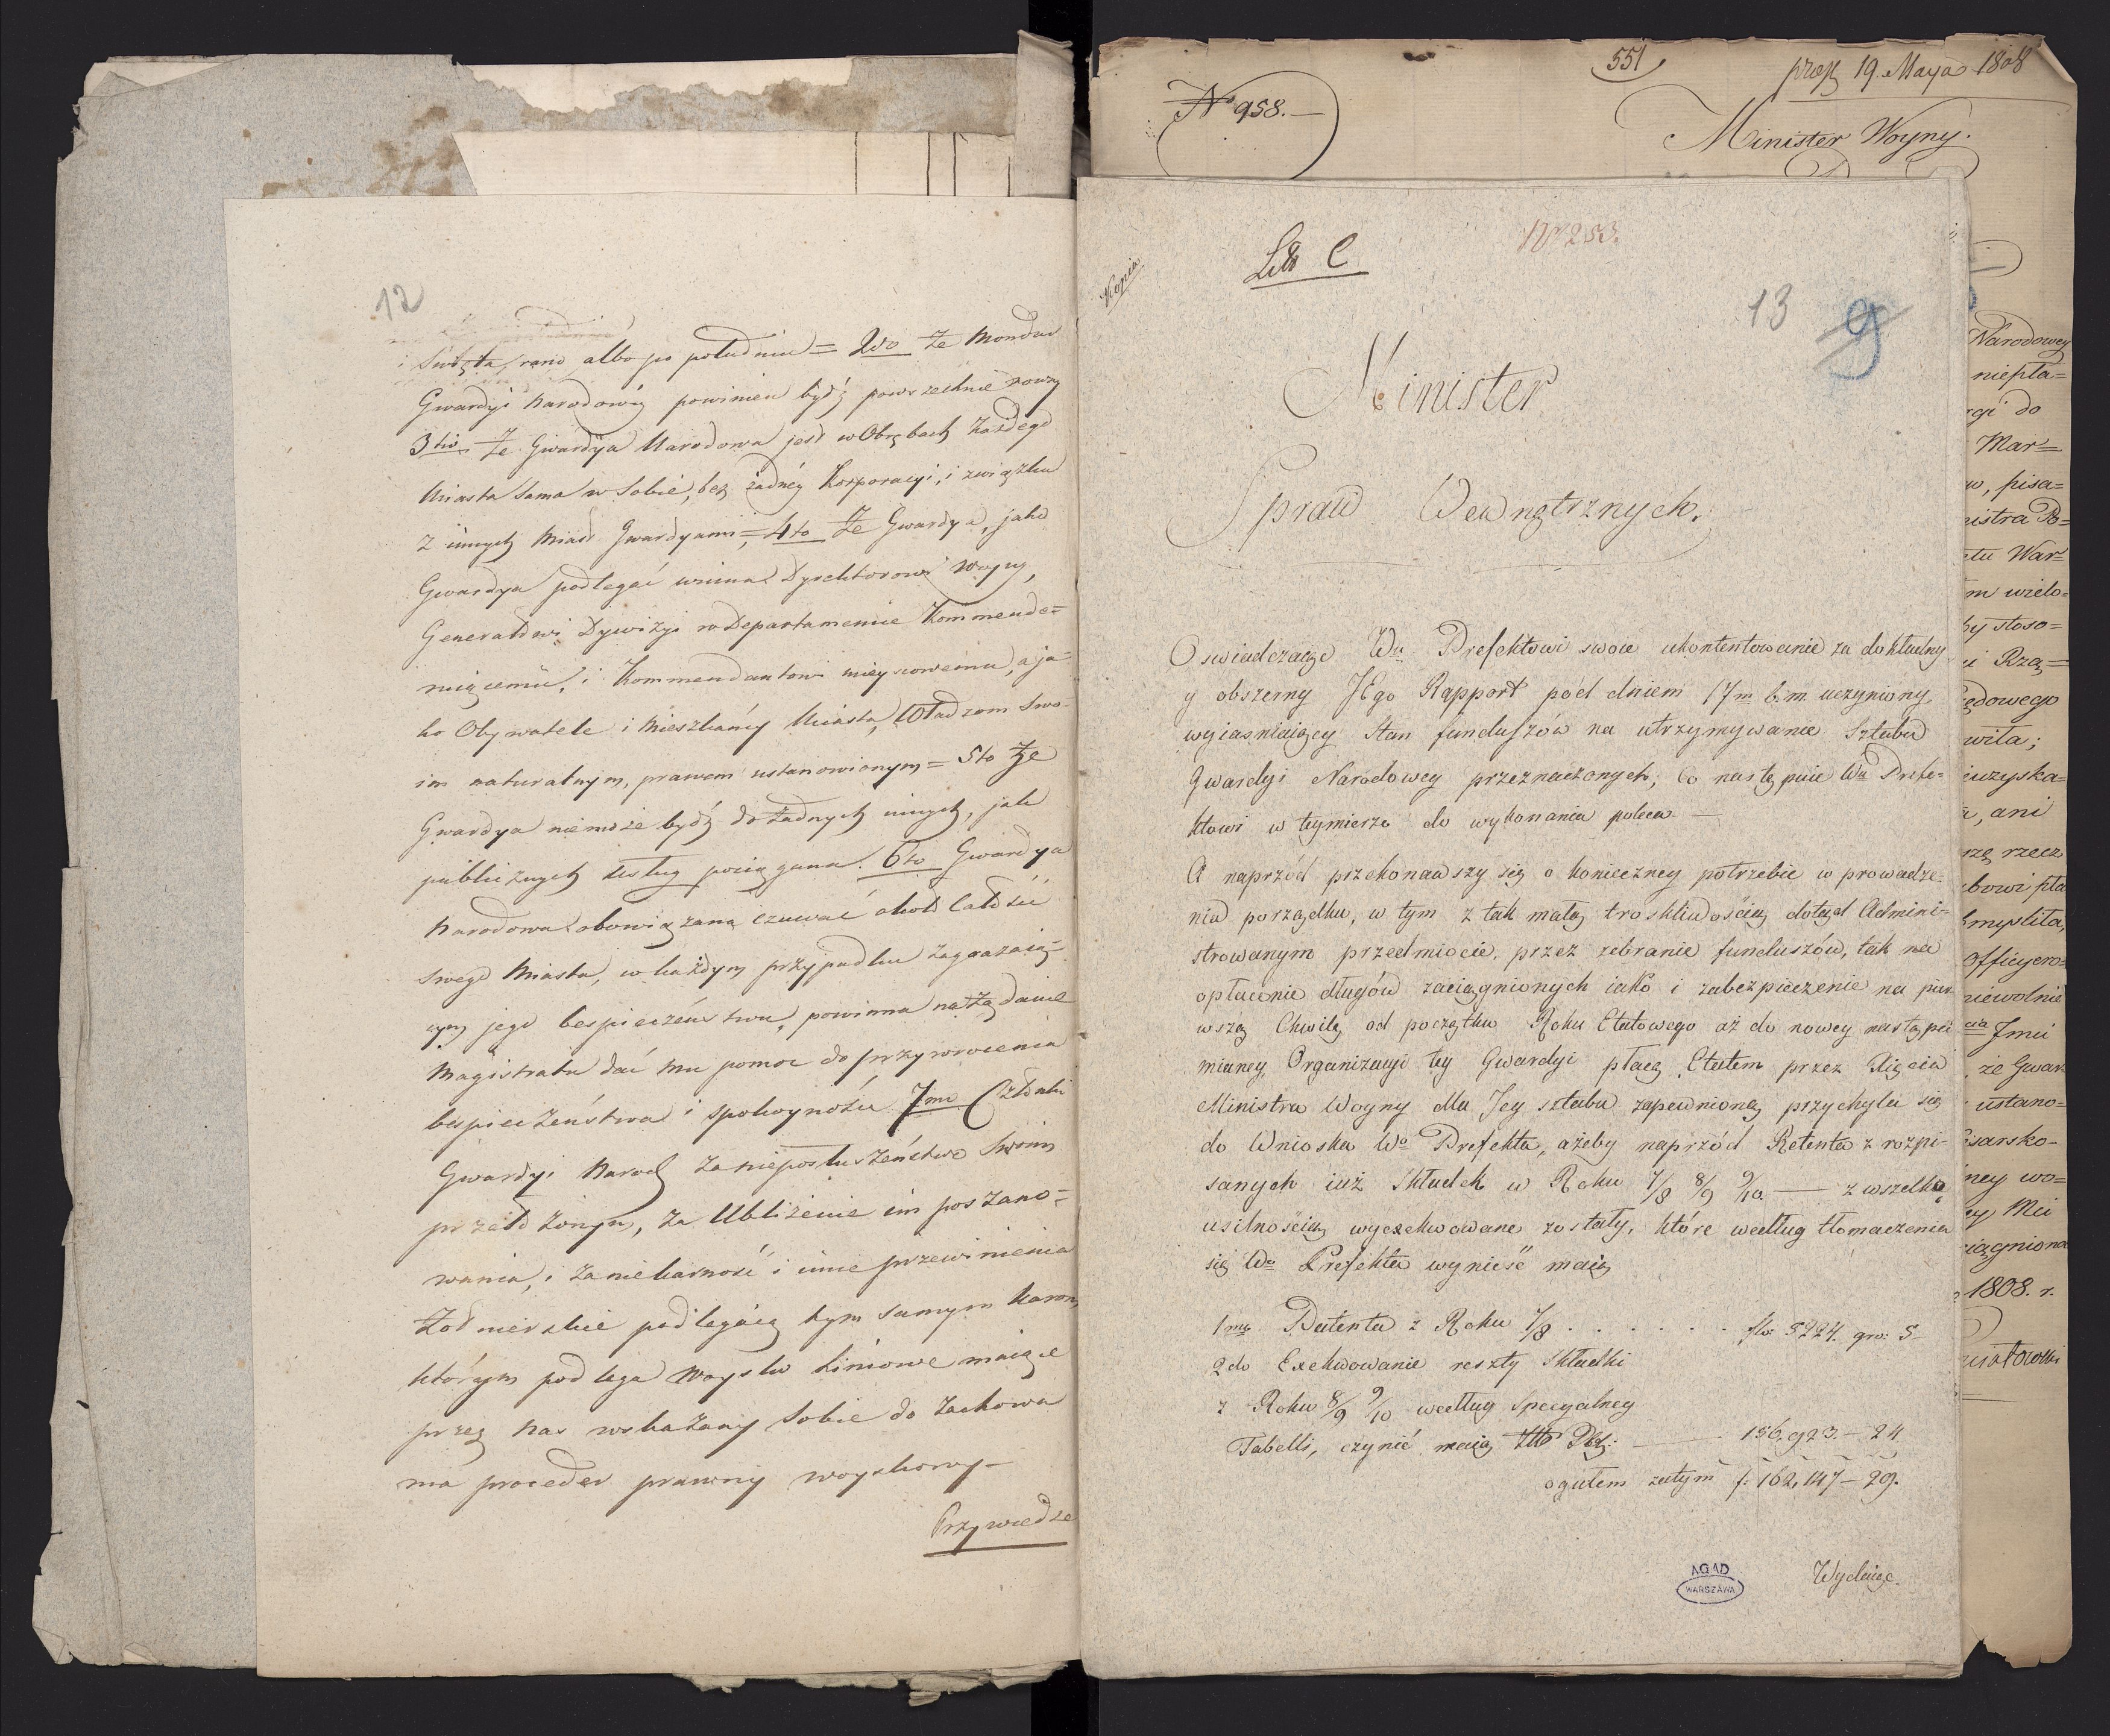 12
i Święta, rano albo po południu = 2do że Mondur
Gwardyi Narodowéy powinien bydź powszechnie nowy
3tio że Gwardya Narodowa jest w Obrębach każdego
Miasta sama w Sobie, bez żadnéy Korporacyi, i związku
z innych Miast Gwardyami = 4to że Gwardya, jako
Gwardya podlegać winna Dyrektorowi Woyny,
Generałowi Dywizyi w Departamencie Kommende=
ruiącemu, i Kommendantowi mieyscowemu, a ja=
ko Obywatele i Mieszkańcy Miasta, Władzom Swo=
im naturalnym, prawem ustanowionym = 5to że
Gwardya niemoże bydź do żadnych innych, jak
publicznych usług pociągana. 6to Gwardya
Narodowa obowiązana czuwać około Całości
swego Miasta, w każdym przypadku zagrażaią=
cym jego bespieczeństwu, powinna na żądanie
Magistratu dać mu pomoc do przywrocenia
bespieczeństwa i spokoyności 7mo Członki
Gwardyi Narod za nieposłuszeństwo Swoim
przełożonym, za Ubliżenie im poszano=
wania, i za niekarność i inne przewinienia
Żołnierskie podlegaią tym samym karom,
którym podlega Woysko Liniowe maiące
przez nas wskazany Sobie do zachowa
nia proceder prawny woyskowy—
Przywiedze
No 958.—
551
præs 19. Maya 1808
Minister Woyny.
Kopia
Litt C
Nr 253.
13 9
Minister
Spraw Wewnętrznych.
Oswiadczaiąc Wu Prefektowi swoie ukontentowanie za dokładny
y obszerny JEgo Rapport pod dniem 17m b.m. uczyniony,
wyiasniaiący Stan funduszów na utrzymywanie Sztabu
Gwardyi Narodowey przeznaczonych; Co następuie Wu Prefe=
ktowi w teymierze do wykonania poleca. —
A naprzód przekonawszy się o konieczney potrzebie wprowadze=
nia porządku, w tym z tak małą troskliwością dotąd Admini=
strowanym przedmiocie, przez zebranie funduszów, tak na
opłacenie długów zaciągnionych iako i zabezpieczenie na pier
wszą Chwilę od początku Roku Etatowego aż do nowey nastąpić
mianey Organizacyi tey Gwardyi płacą Etatem przez Xięcia
Ministra Woyny dla Jey sztabu zapewnioną, przychyla się
do Wnioska Wo Prefekta, ażeby naprzód Retenta z rozpi=
sanych iuż Składek w Roku 7/8 8/9 9/10 — z wszelką
usilnością wyexekwowane zostały, które według tłomaczenia
się Wo Prefekta wynieść maią
1mo Retenta z Roku 7/8 . . . . . . flo: 5224. gro: 5
2do Exekwowanie reszty Składki
z Roku 8/9 9/10 według specyalney
Tabelli, czynić maią — 156,923.— 24
ogułem zatym f: 162,147— 29.
Wydaiąc
AGAD
WARSZAWA
Narodowey
niepła=
do
Mar=
pisa=
War=
wielo=
stoso=
Rzą=
ani
rzecz
Officyero=
niewolnie
Jmci
że Gwar
ustano=
wo=
1808. r.